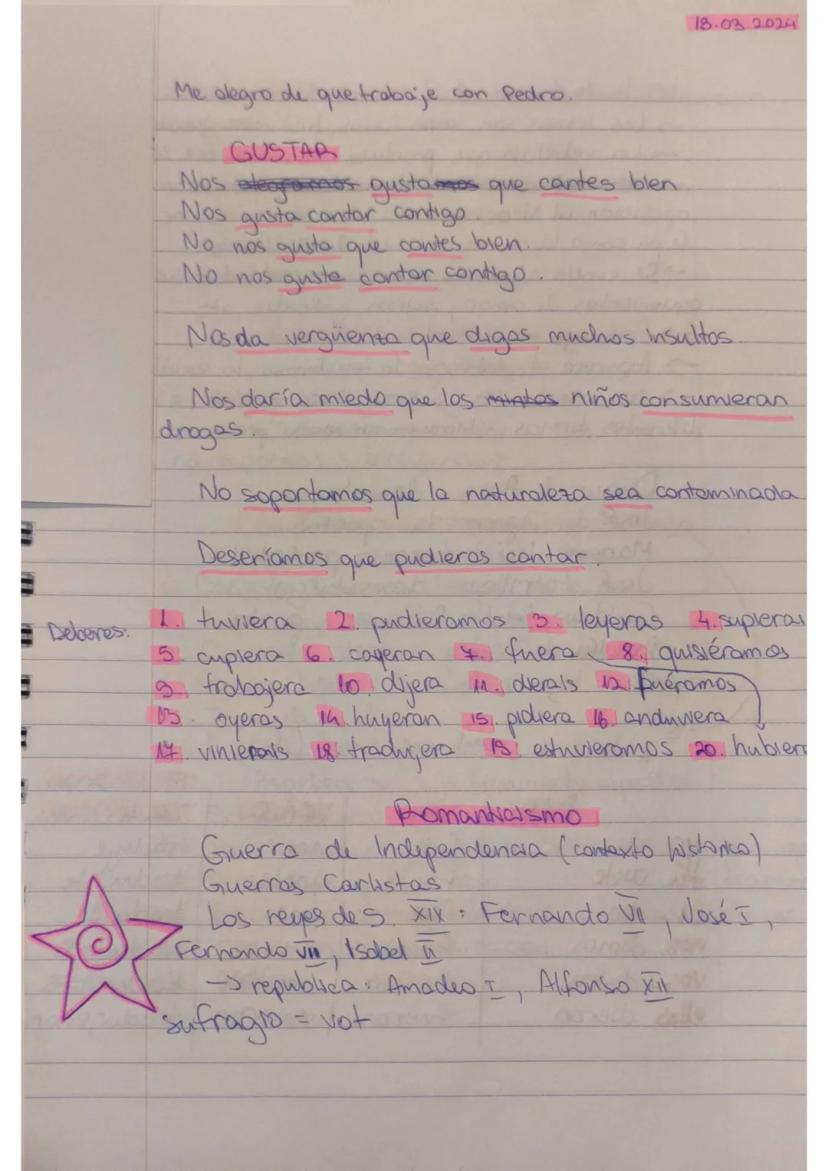 18.03.2024
Me alegro de que trabaje con Pedro.
GUSTAR
Nos gusta que cantes bien
Nos gusta cantar contigo.
No nos gusta que cantes bien.
No nos gusta cantar contigo.
Nos da vergüenza que digas muchos insultos.
Nos daría miedo que los niños consumieran
drogas.
No soportamos que la naturaleza sea contaminada
Desearíamos que pudieras cantar.
Deberes: 1. tuviera 2. pudieramos 3. leyeras 4. supieras
5. cupiera 6. cayeran 7. fuera 8. quisiéramos
9. trabajera 10. dijera 11. dierais 12. fuéramos
13. oyeras 14. huyeran 15. pidiera 16. anduviera
17. vinierais 18. tradujera 19. estuvieramos 20. hubiera
Romanticismo
Guerra de Independencia (contexto historico)
Guerras Carlistas
Los reyes de S. XIX: Fernando VII, José I,
Fernando VII, Isabel II
-> republica: Amadeo I, Alfonso XII
sufragio = vot